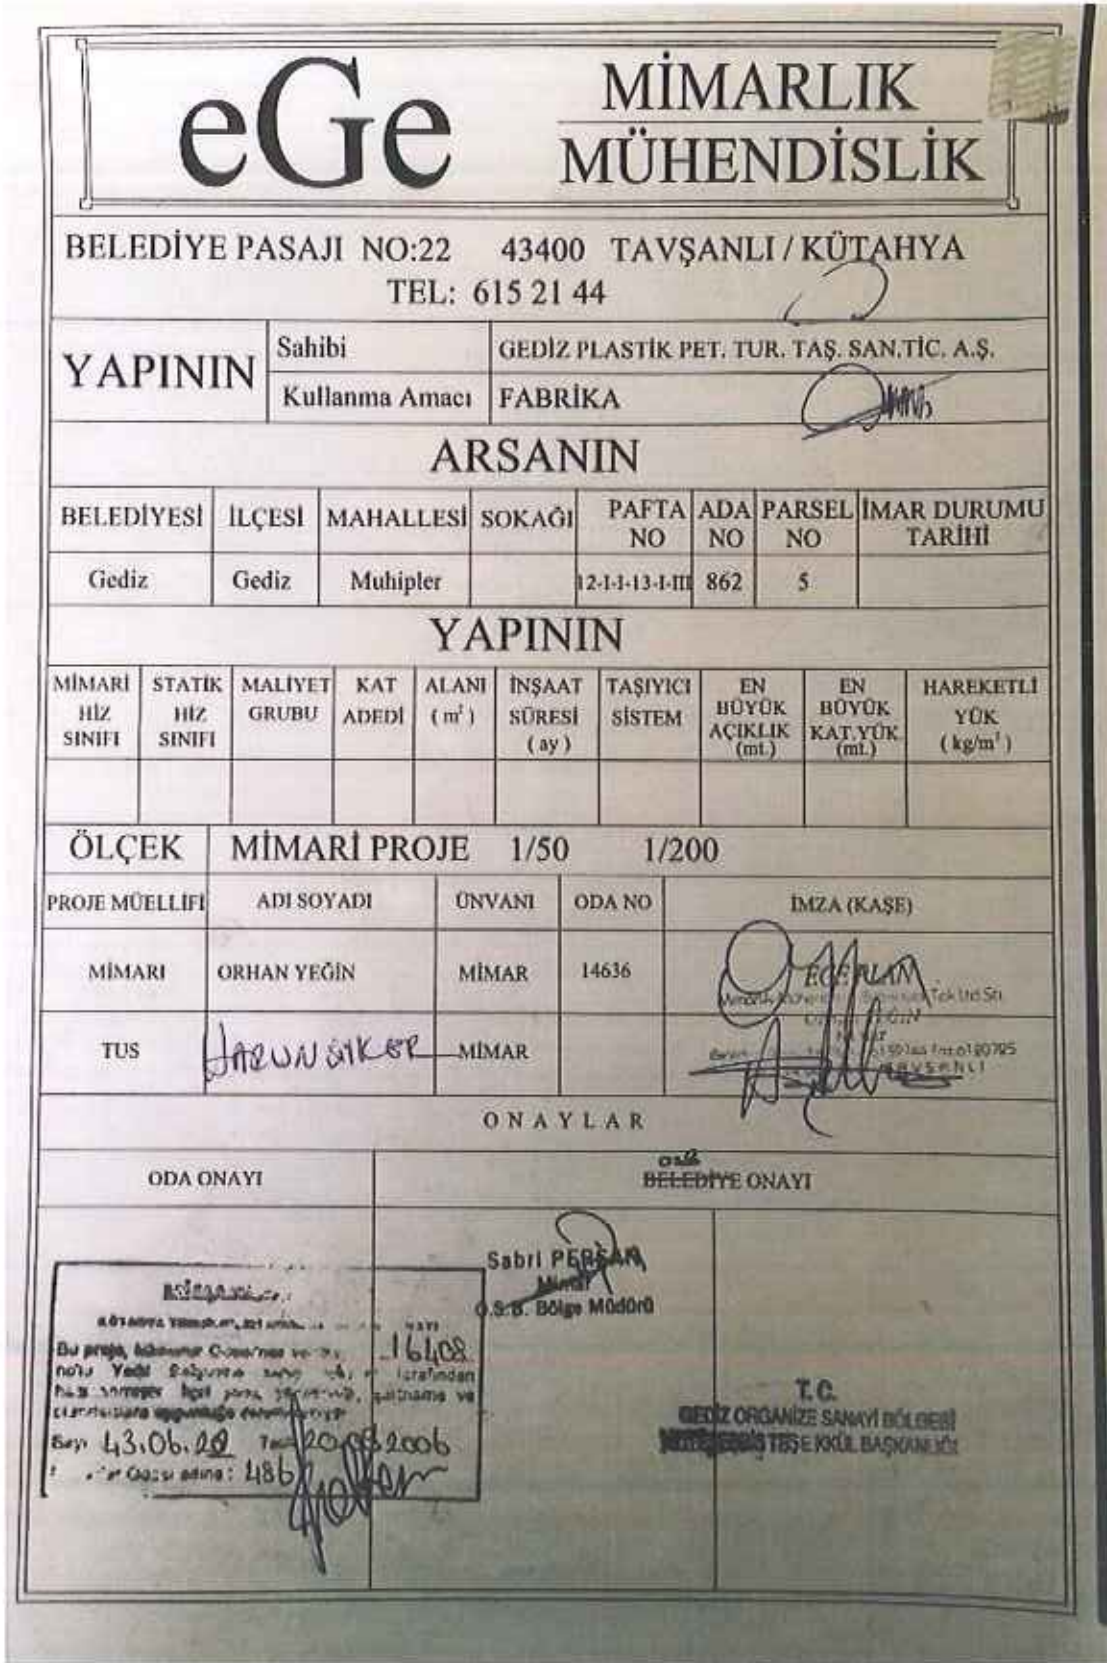 eGe MİMARLIK
MÜHENDİSLİK
BELEDİYE PASAJI NO:22 43400 TAVŞANLI / KÜTAHYA
TEL: 615 21 44
YAPININ
Sahibi GEDİZ PLASTİK PET. TUR. TAŞ. SAN.TİC. A.Ş.
Kullanma Amacı FABRİKA
ARSANIN
BELEDİYESİ İLÇESİ MAHALLESİ SOKAĞI PAFTA NO ADA NO PARSEL NO İMAR DURUMU TARİHİ
Gediz Gediz Muhipler 12-I-I-13-I-III 862 5
YAPININ
MİMARİ HİZ SINIFI STATİK HİZ SINIFI MALİYET GRUBU KAT ADEDİ ALANI ( m² ) İNŞAAT SÜRESİ ( ay ) TAŞIYICI SİSTEM EN BÜYÜK AÇIKLIK (mt.) EN BÜYÜK KAT.YÜK. (mt.) HAREKETLİ YÜK ( kg/m² )
ÖLÇEK MİMARİ PROJE 1/50 1/200
PROJE MÜELLİFİ ADI SOYADI ÜNVANI ODA NO İMZA (KAŞE)
MİMARI ORHAN YEĞİN MİMAR 14636
EGE PLAN
Tek Ltd Sti
TUS HARUN MİMAR
TAVŞANLI
ONAYLAR
ODA ONAYI
OSB
BELEDİYE ONAYI
Sabri PERŞAN
Mimar
O.S.B. Bölge Müdürü
Bu proje, 16408
nolu tarafından
Sayı 43.06.20 20.09.2006
adına: 486
T.C.
GEDİZ ORGANİZE SANAYİ BÖLGESİ
MÜTEŞEBBİS TEŞEKKÜL BAŞKANLIĞI